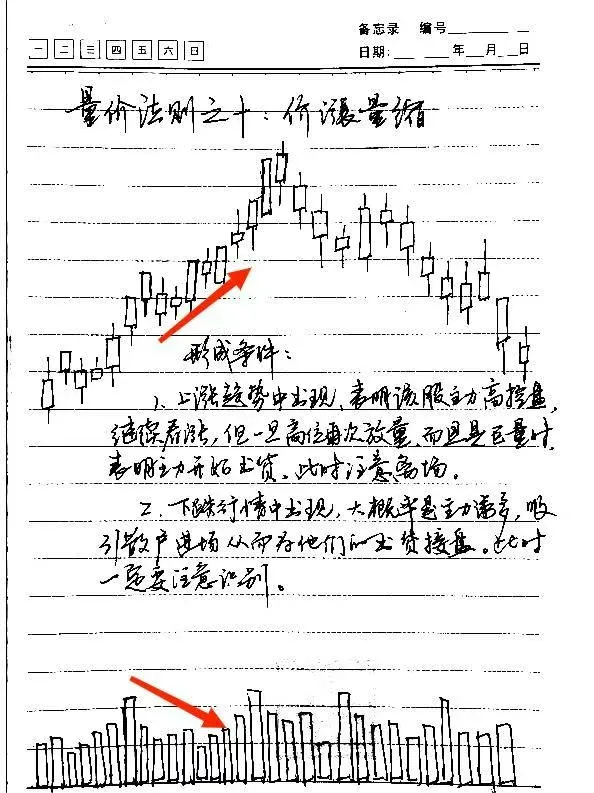 备忘录 编号
一 二 三 四 五 六 日
日期: 年 月 日
量价法则之十:价涨量缩
形成条件:
1、上涨趋势中出现,表明该股主力高控盘,
继续看涨,但一旦高位再次放量,而且是巨量时,
表明主力开始出货。此时注意离场。
2、下跌行情中出现,大概率是主力诱多,吸
引散户进场从而为他们的出货接盘。此时
一定要注意识别。